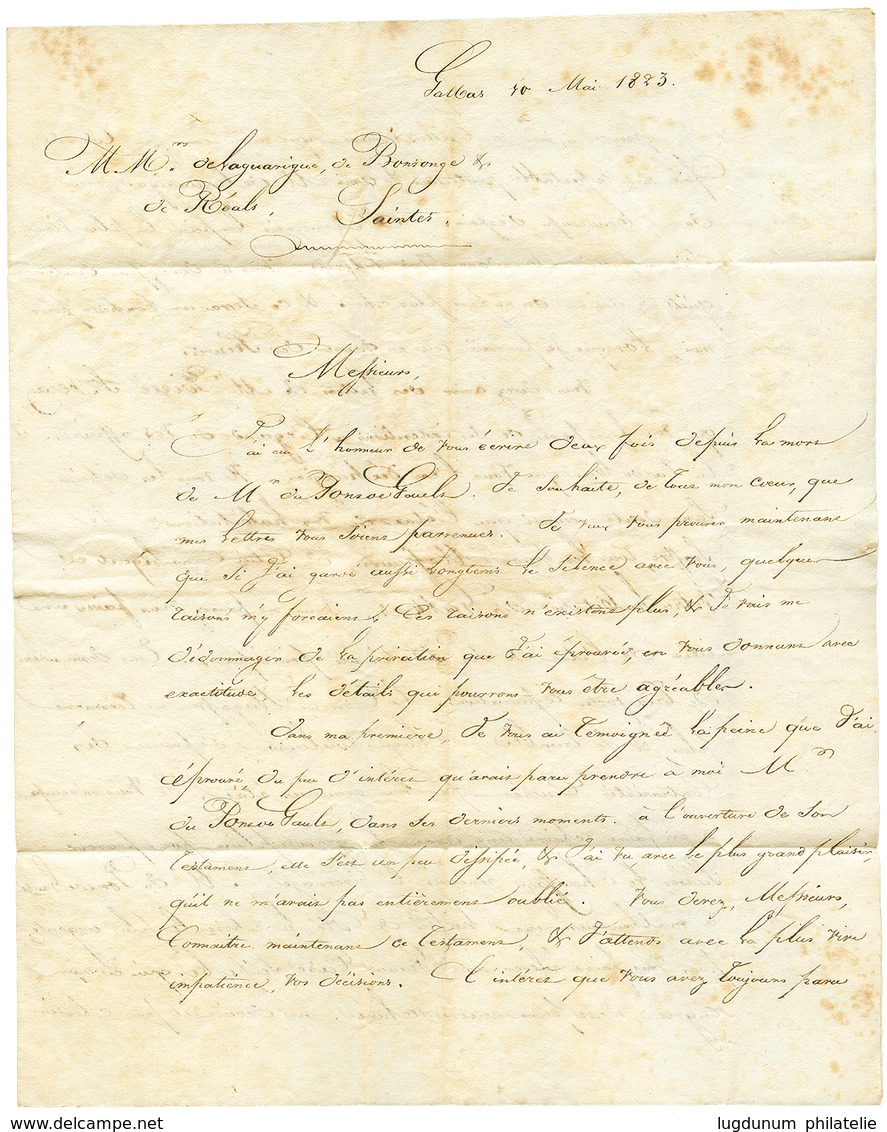 Galbas 10 Mai 1823.
M Mrs. de Laguarigue, de Bonsonge &
de Réals, Saintes.
Messieurs,
J'ai eu l'honneur de vous écrire deux fois depuis la mort
de Mr du Pons de Gault. Je souhaite, de tout mon coeur, que
mes lettres vous soient parvenues. Je veux vous prouver maintenant
que si j'ai gardé aussi longtems le silence avec vous, quelques
raisons m'y forcaient. Ces raisons n'existent plus, & je vais me
dédommager de la privation que j'ai éprouvée, en vous donnant avec
exactitude, les détails qui pourront vous être agréables.
Dans ma première, je vous ai témoigné la peine que j'ai
éprouvé du peu d'intérêt qu'avait paru prendre à moi Mr
du Pons de Gault, dans ses derniers moments. à l'ouverture de son
testament, elle s'est un peu dissipée, & j'ai vu avec le plus grand plaisir
qu'il ne m'avait pas entièrement oublié. Vous devez, Messieurs,
connaître maintenant ce testament, & j'attends avec la plus vive
impatience, vos décisions. L'intérêt que vous avez toujours paru
lugdunum philatelie
www.delcampe.net